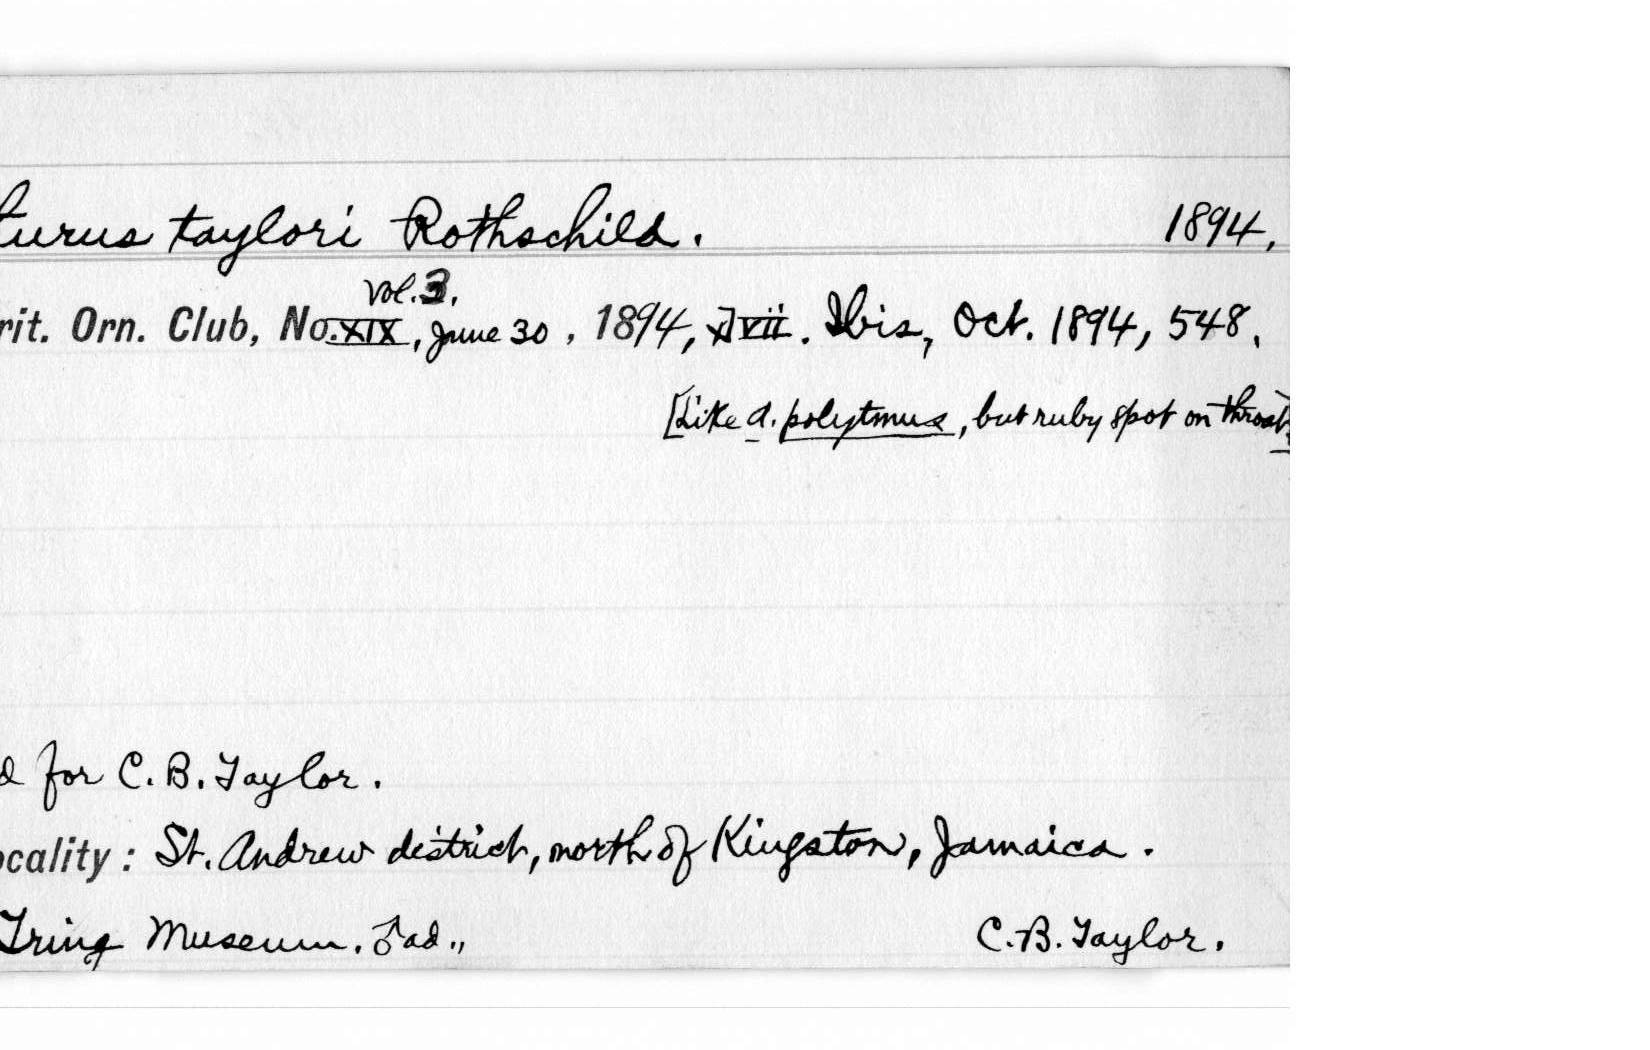 turus taylori Rothschild. 1894,
Vol. 3.
rit. Orn. Club, No. XIX, June 30, 1894, xlvii. Ibis, Oct. 1894, 548.
[Like A. polytmus, but ruby spot on throat]
d for C. B. Taylor.
ocality: St. Andrew district, north of Kingston, Jamaica.
Tring Museum. ♂ ad., C. B. Taylor.